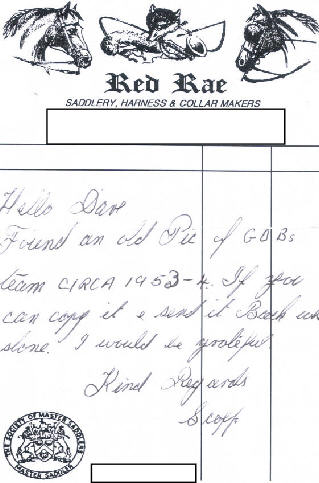 Red Rae
SADDLERY, HARNESS & COLLAR MAKERS
Hello Dave
Found an old Pic of GDBs
team CIRCA 1953-4. If you
can copy it & send it Back
done. I would be grateful.
Kind Regards
THE SOCIETY OF MASTER SADDLERS
MASTER SADDLER